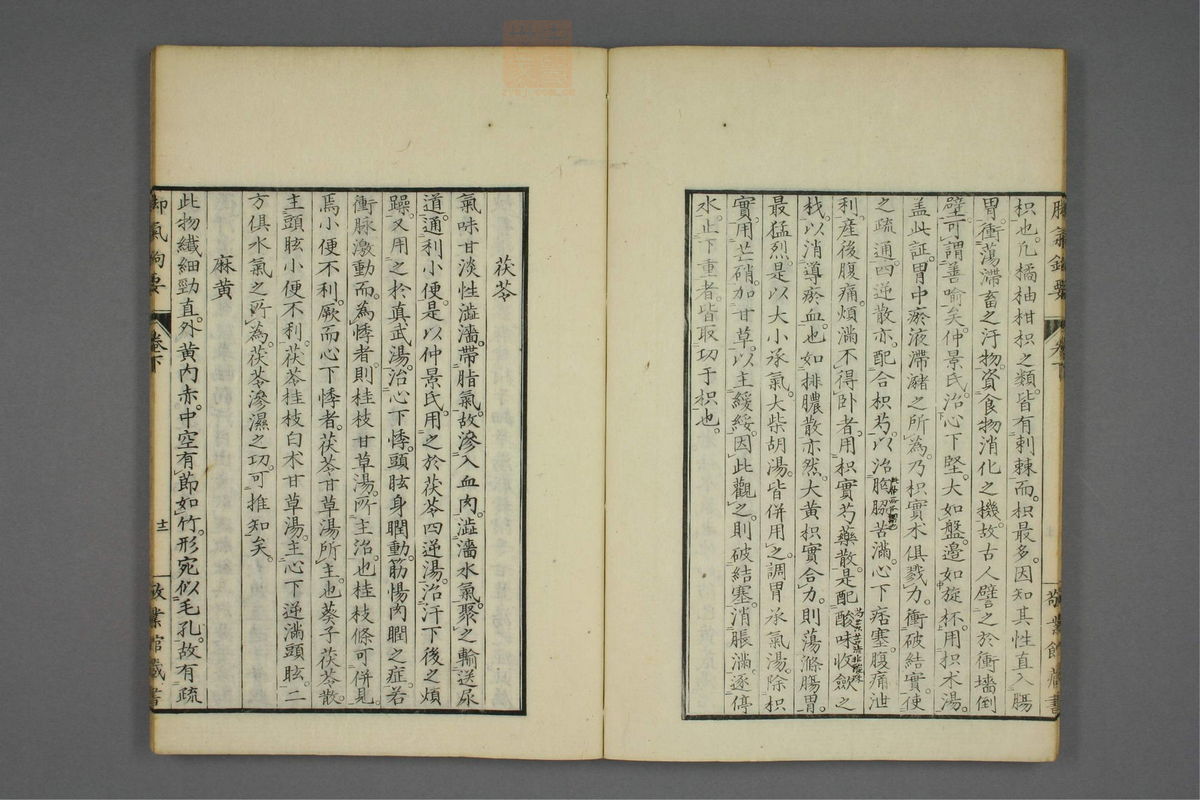 枳也。凡橘柚柑枳之類。皆有刺棘而。枳最多。因知其性直入腸
胃。衝蕩滯畜之汙物。資食物消化之機。故古人譬之於衝墻倒
壁。可謂善喻矣。仲景氏。治心下堅。大如盤。邊如旋杯。用枳朮湯。
盖此証。胃中瘀液滯瀦之所為。乃枳實朮俱戮力。衝破結實。使
之疏通。四逆散亦。配合枳芍。以治胸脇苦滿。心下痞塞。腹痛泄
利。產後腹痛。煩滿不得臥者。用枳實芍藥散。是配酸味收斂之
芍。以消導瘀血也。如排膿散亦然。大黃枳實合力。則蕩滌腸胃。
最猛烈。是以大小承氣。大柴胡湯。皆併用之。調胃承氣湯。除枳
實。用芒硝。加甘草。以主緩緩。因此觀之。則破結塞。消脹滿。逐停
水。止下重者。皆取功于枳也。
茯苓
氣味甘淡。性澁濇。帶脂氣。故滲入血肉。澁濇水氣聚之。輸送尿
道。通利小便。是以仲景氏。用之於茯苓四逆湯。治汗下後之煩
躁。又用之於真武湯。治心下悸。頭眩身瞤動。筋惕肉瞤之症。若
衝脉激動而。為悸者。則桂枝甘草湯。所主治也桂枝條可併見。
焉小便不利。厥而心下悸者。茯苓甘草湯所主也葵子茯苓散。
主頭眩小便不利。茯苓桂枝白朮甘草湯。主心下逆滿頭眩。二
方俱水氣之所為。茯苓滲濕之功。可推知矣。
麻黃
此物纖細勁直。外黃內赤。中空有節如竹。形宛似毛孔。故有疏
卷下
十二
敬業館藏書